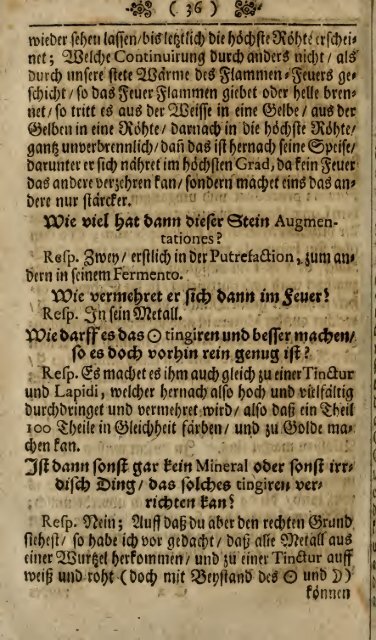 ( 36 )
wieder sehen lassen/ bis letztlich die höchste Röhte erschei-
net; Welche Continuirung durch anders nicht/ als
durch unsere stete Wärme des Flammen-Feuers ge-
schicht/ so das Feuer Flammen giebet oder helle bren-
net/ so tritt es aus der Weisse in eine Gelbe/ aus der
Gelben in eine Röhte/ darnach in die höchste Röhte/
gantz unverbrennlich/ dañ das ist hernach seine Speise/
darunter er sich nähret im höchsten Grad, da kein Feuer
das andere verzehren kan/ sondern machet eins das an-
dere nur stärcker.
Wie viel hat dann dieser Stein Augmen-
tationes?
Resp. Zwey/ erstlich in der Putrefaction, zum an-
dern in seinem Fermento.
Wie vermehret er sich dann im Feuer?
Resp. In sein Metall.
Wie darff es das ☉ tingiren und besser machen/
so es doch vorhin rein genug ist?
Resp. Es machet es ihm auch gleich zu einer Tinctur
und Lapidi, welcher hernach also hoch und vielfältig
durchdringet und vermehret wird/ also daß ein Theil
100 Theile in Gleichheit färben/ und zu Golde ma-
chen kan.
Ist dann sonst gar kein Mineral oder sonst irr-
disch Ding/ das solches tingiren ver-
richten kan?
Resp. Nein; Auff daß du aber den rechten Grund
siehest/ so habe ich vor gedacht/ daß alle Metall aus
einer Wurtzel herkommen/ und zu einer Tinctur auff
weiß und roht (doch mit Beystand des ☉ und ☽)
können